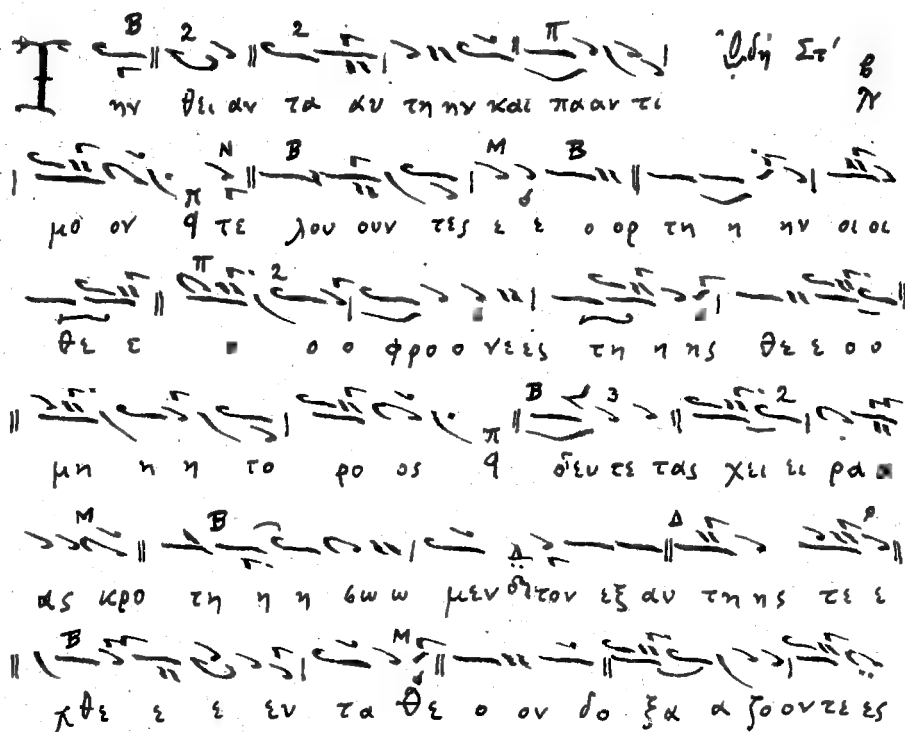 Τ ην θει αν τα αυ τη ην και πααν τι ᾨδή Στ'
μο ον τε λου ουν τες ε ε ο ορ τη η ην οι οι
θε ε ο ο φρο ο νεες τη η ης θε ε ο ο
μη η η το ρο ος δευ τε τας χει ει ρα
ας κρο τη η η σω ω μεν τον εξ αυ τη ης τε ε
χθε ε ε εν τα Θε ο ον δο ξα α ζο οντεες